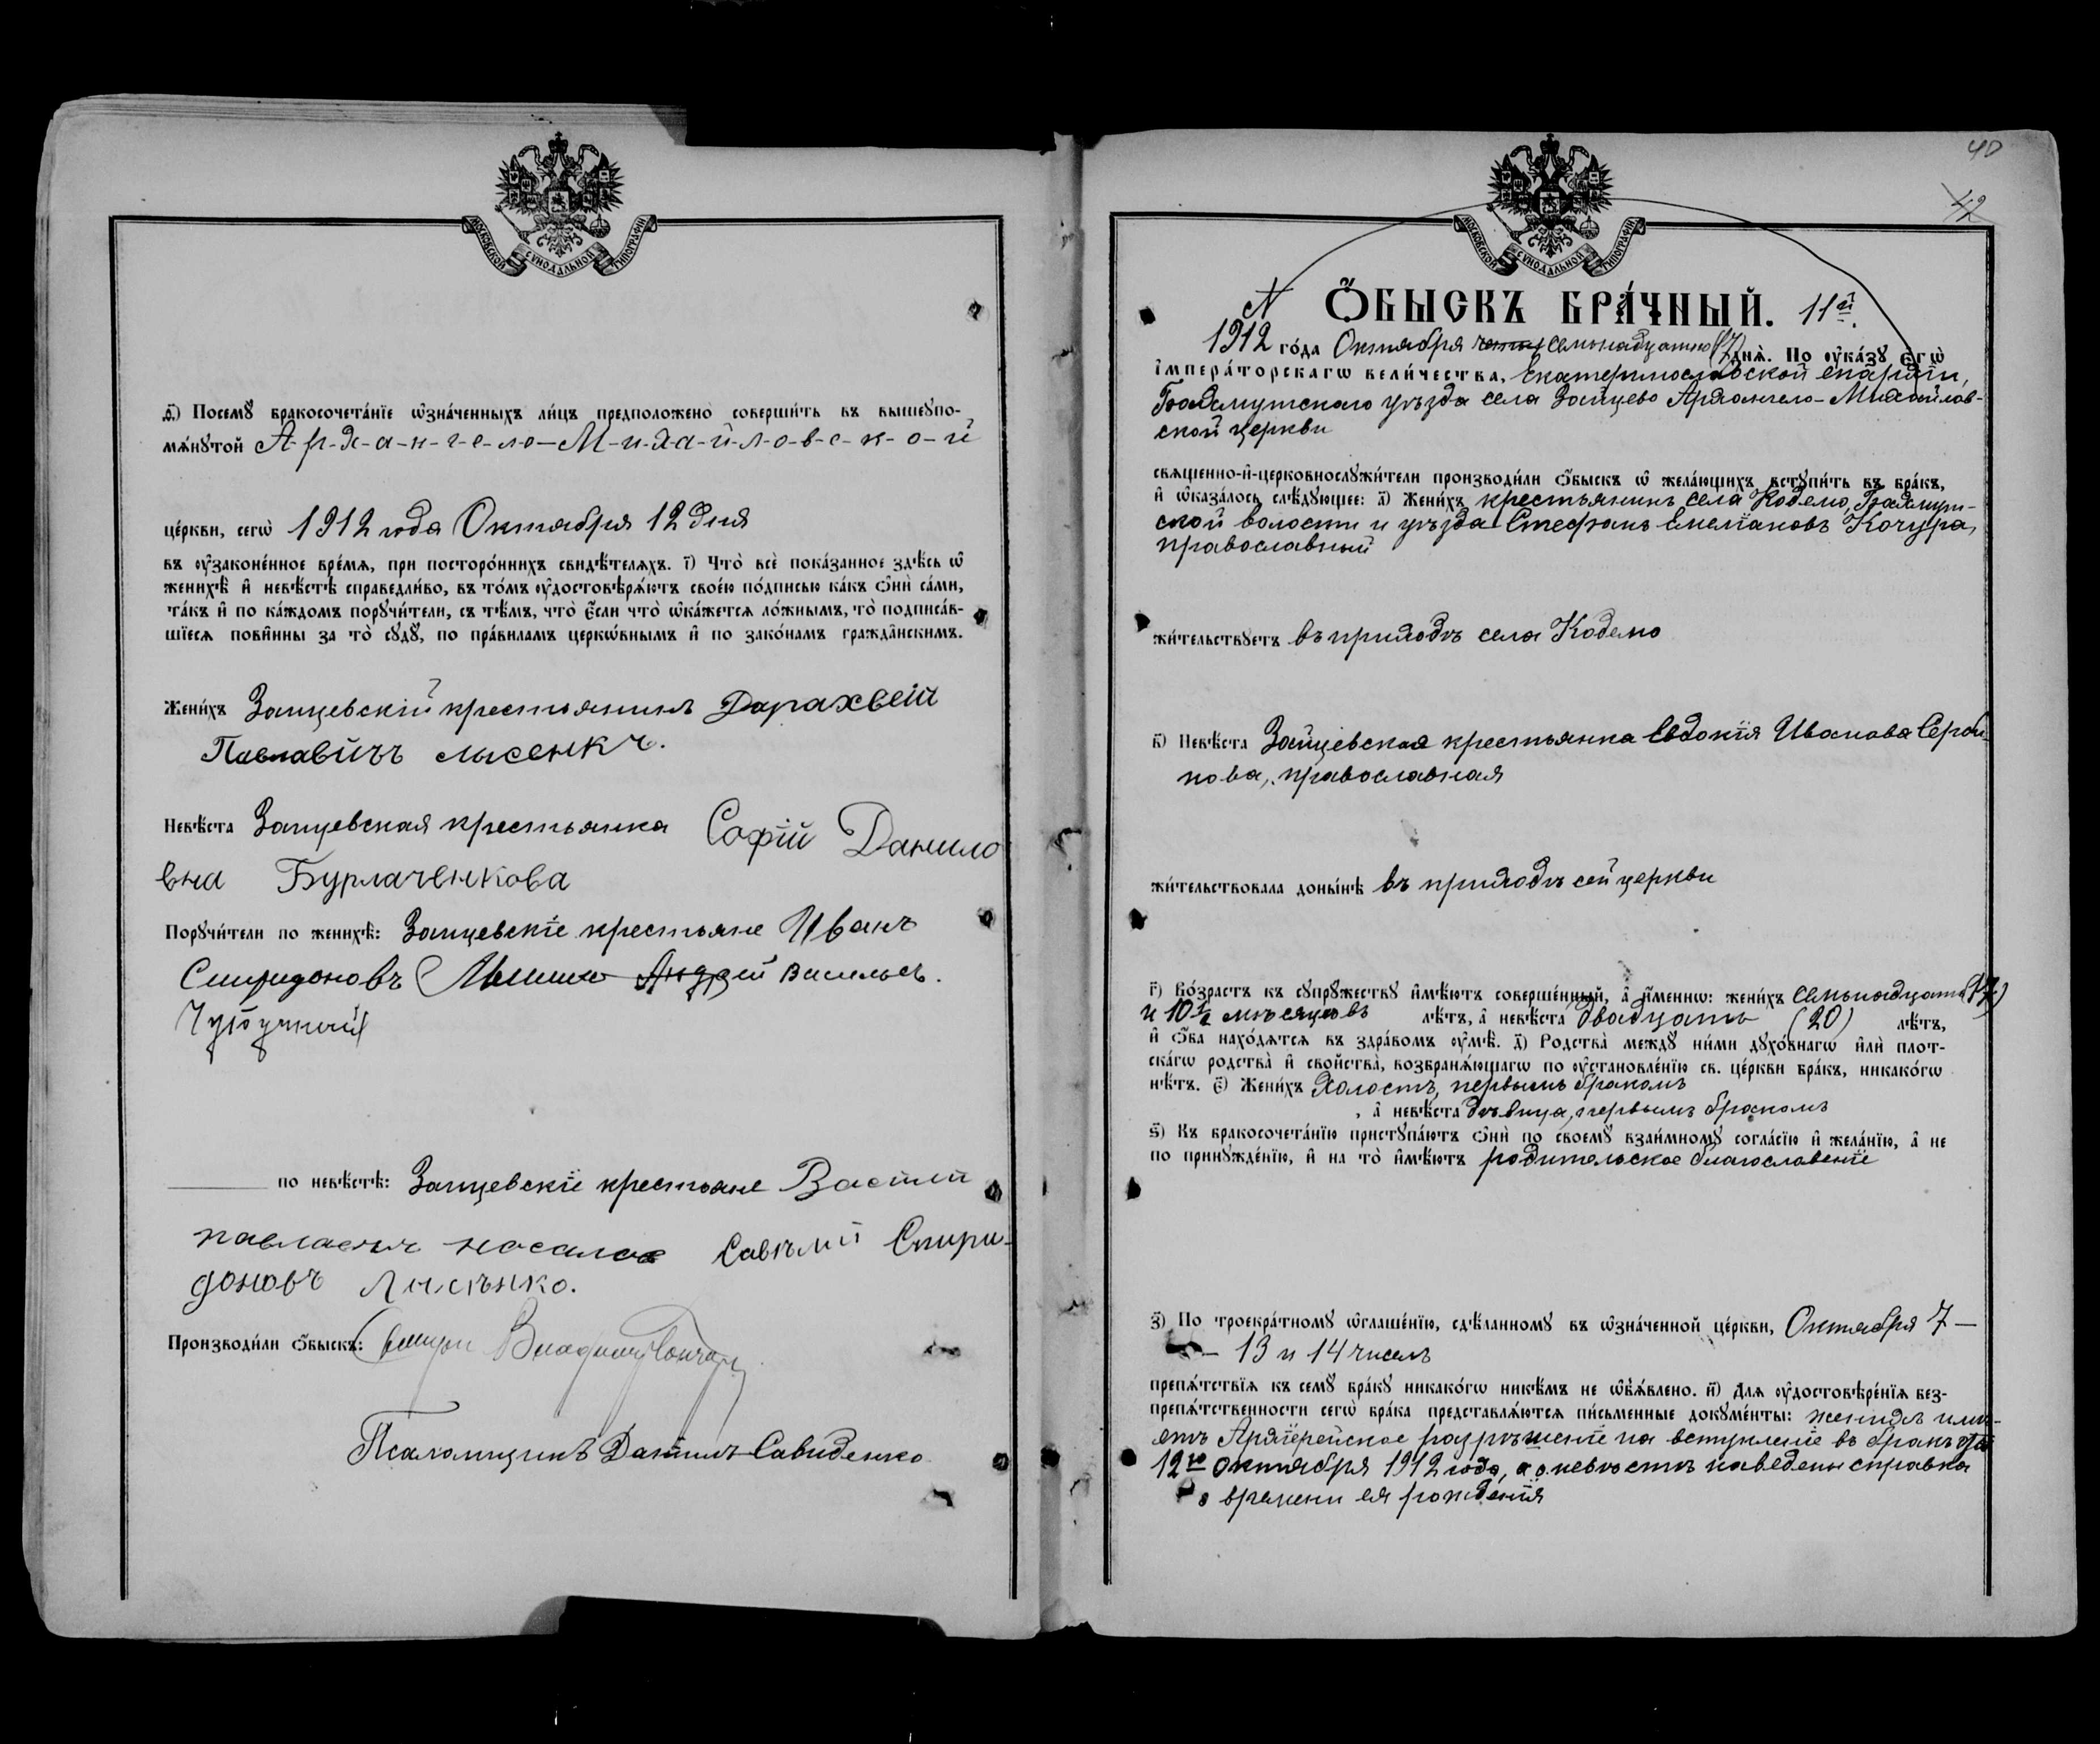 МОСКОВСКОЙ СѴНОДАЛЬНОЙ ТИПОГРАФІИ
ѳ҃) Посемꙋ бракосочета́нїе ѡ҆зна́ченныхъ ли́цъ предположено̀ соверши́ть въ вышеꙋпо-
мѧ́нꙋтой А-р-х-а-н-г-е-ло-М-и-ха-й-л-о-в-с-к-о-й
це́ркви, сегѡ̀ 1912 года Октября 12 дня
въ ᲂу҆законе́нное вре́мѧ, при посторо́ннихъ свидѣ́телѧхъ. і҃) Что̀ всѐ пока́занное здѣ́сь ѡ҆
женихѣ̀ и҆ невѣ́стѣ справедли́во, въ то́мъ ᲂу҆достовѣрѧ́ютъ свое́ю по́дписью ка́къ ѻ҆нѝ са́ми,
та́къ и҆ по ка́ждомъ порꙋчи́тели, съ тѣ́мъ, что̀ є҆́сли что̀ ѡ҆ка́жетсѧ ло́жнымъ, то̀ подписа́в-
шїесѧ пови́нны за то̀ сꙋдꙋ̀, по пра́виламъ церкѡ́внымъ и҆ по зако́намъ гражда́нскимъ.
Жени́хъ Зайцевскій крестьянинъ Дарахвей
Павлавичъ лысенкъ.
Невѣ́ста Зайцевская крестьянка Софій Данило
вна Бурлаченкова
Порꙋчи́тели по женихѣ̀: Зайцевскіе крестьяне Иванъ
Спиридоновъ Андрей Васильев.
по невѣ́стѣ: Зайцевскіе крестьяне Васили
Спири-
доновъ Лысѣнко.
Производи́ли ѻ҆́быскъ:
Псаломщикъ Данiилъ Савиденко
40
42
МОСКОВСКОЙ СѴНОДАЛЬНОЙ ТИПОГРАФІИ
N Ѻ҆́БЫСКЪ БРА́ЧНЫЙ. 11й.
1912 го́да Октября семьнадцатаго (17) днѧ̀. По ᲂу҆ка́зꙋ є҆гѡ̀
і҆мпера́торскагѡ вели́чества, Екатеринославской епархіи,
Бахмутскаго уѣзда села Зайцево Архангело-Михайлов-
ской церкви
сващенно-и҆-церковнослꙋжи́тели производи́ли ѻ҆́быскъ ѡ҆ жела́ющихъ встꙋпи́ть въ бра́къ,
и҆ ѡ҆каза́лось слѣ́дꙋющее: а҃) Жени́хъ крестьянинъ села Кодемо, Бахмут-
ской волости и уѣзда Стефанъ Емеліановъ Кочура,
православный
жи́тельствꙋетъ въ приходѣ села Кодемо
в҃) Невѣ́ста Зайцевская крестьянка Евдокія Иванова Сера-
кова, православная
жи́тельствовала доны́нѣ въ приходѣ сей церкви
г҃) Во́зрастъ къ сꙋпрꙋжествꙋ и҆мѣ́ютъ соверше́нный, а҆ и҆́меннѡ: жени́хъ семьнадцать (17)
и 10½ мѣсяцовъ лѣ́тъ, а҆ невѣ́ста двадцать (20) лѣ́тъ,
и҆ ѻ҆́ба нахо́дѧтсѧ въ здра́вомъ ᲂу҆мѣ̀. д҃) Родства̀ междꙋ ни́ми дꙋхо́внагѡ и҆лѝ плот-
ска́гѡ родства̀ и҆ сво́йства̀, возбранѧ́ющагѡ по ᲂу҆становле́нїю св. це́ркви бра́къ, никако́гѡ
нѣ́тъ. є҃) Жени́хъ холостъ, первымъ бракомъ
, а҆ невѣ́ста дѣвица, первымъ бракомъ
ѕ҃) Къ бракосочета́нїю пристꙋпа́ютъ ѻ҆нѝ по своемꙋ̀ взаи́мномꙋ согла́сїю и҆ жела́нїю, а҆ не
по принꙋжде́нїю, и҆ на то̀ и҆мѣ́ютъ родительское благославеніе
з҃) По троекра́тномꙋ ѡ҆глаше́нїю, сдѣ́ланномꙋ въ ѡ҆зна́ченной це́ркви, Октября 7 —
— 13 и 14 чиселъ
препѧ́тствїѧ къ семꙋ̀ бра́кꙋ никако́гѡ никѣ́мъ не ѡ҆б̾ѧ́влено. и҃) Длѧ ᲂу҆достовѣре́нїѧ без-
препѧ́тственности сегѡ̀ бра́ка представлѧ́ютсѧ пи́сьменные докꙋме́нты: женихъ имѣ-
етъ Архіерейское разрѣшеніе на вступленіе въ бракъ отъ
12го октября 1912 года, а о невѣстѣ наведены справка
о времени ея рожденія